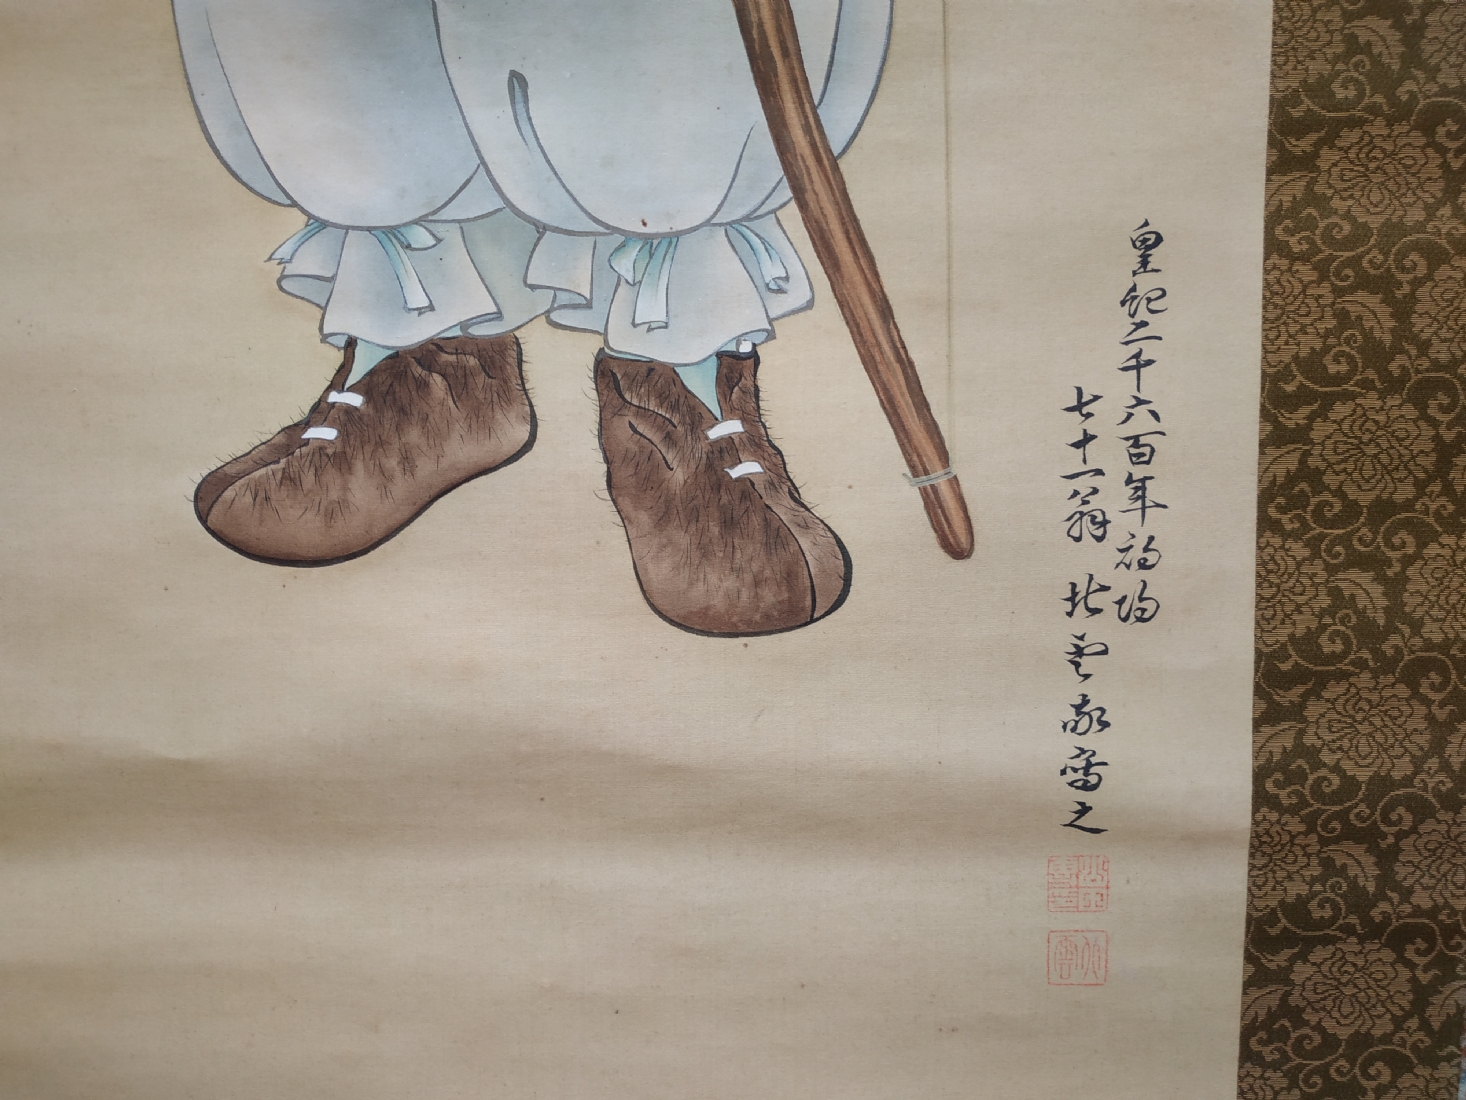 皇紀二千六百年初陽
七十一翁 北雲敬寫之